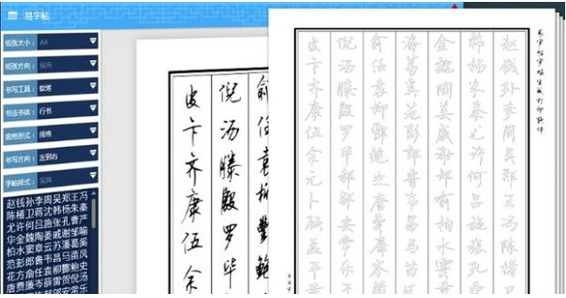 易字帖
纸张大小: A4
纸张方向: 纵向
书写工具: 软笔
书法字体: 行书
书写方向: 左到右
字帖样式:
赵钱孙李周吴郑王冯
陈楮卫蒋沈韩杨朱秦
尤许何吕施张孔曹严
华金魏陶姜戚谢邹喻
柏水窦章云苏潘葛奚
范彭郎鲁韦昌马苗凤
花方俞任袁柳酆鲍史
唐费廉岑薛雷贺倪汤
俞任袁柳酆鲍
倪汤滕殷罗毕
皮卞齐康伍余
易字帖字帖生成打印软件
赵钱孙李周吴郑王冯陈褚
韩杨朱秦尤许何吕施张孔
金魏陶姜戚谢邹喻柏水窦
潘葛奚范彭郎鲁韦昌马苗
俞任袁柳酆鲍史唐费廉岑
倪汤滕殷罗毕郝邬安常乐
皮卞齐康伍余元卜顾孟平